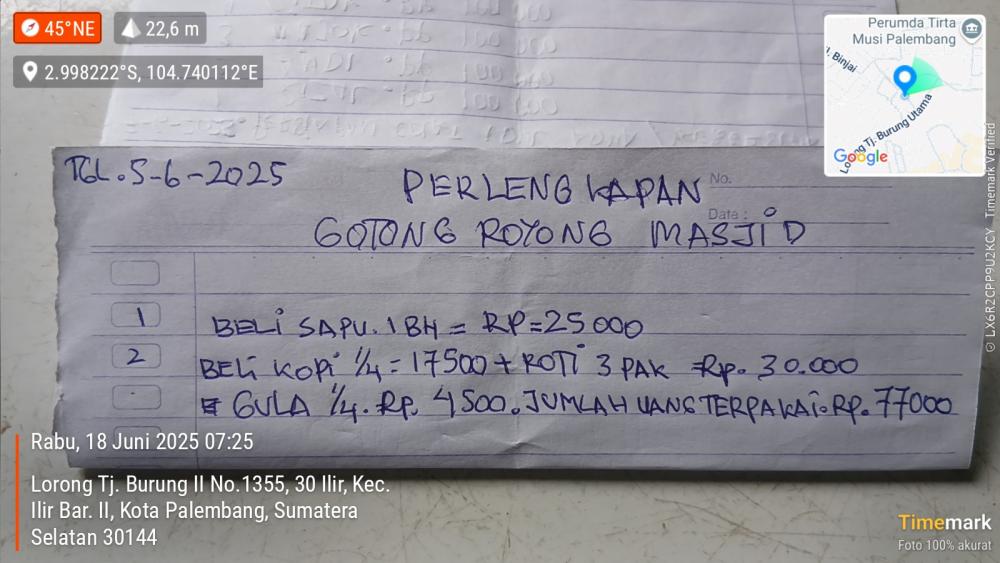 45°NE
22,6 m
2.998222°S, 104.740112°E
Perumda Tirta
Musi Palembang
Binjai
Lorong Tj. Burung Utama
Google
TGL. 5-6-2025
PERLENGKAPAN
No.
Date :
GOTONG ROYONG MASJID
1 BELI SAPU. 1 BH = RP=25 000
2 BELI KOPI 1/4 = 17500 + ROTI 3 PAK =Rp. 30.000
GULA 1/4. Rp. 4500. JUMLAH UANG TERPAKAI=RP. 77000
Rabu, 18 Juni 2025 07:25
Lorong Tj. Burung II No.1355, 30 Ilir, Kec.
Ilir Bar. II, Kota Palembang, Sumatera
Selatan 30144
Timemark
Foto 100% akurat
© LX6R2CPP9U2KCY Timemark Verified